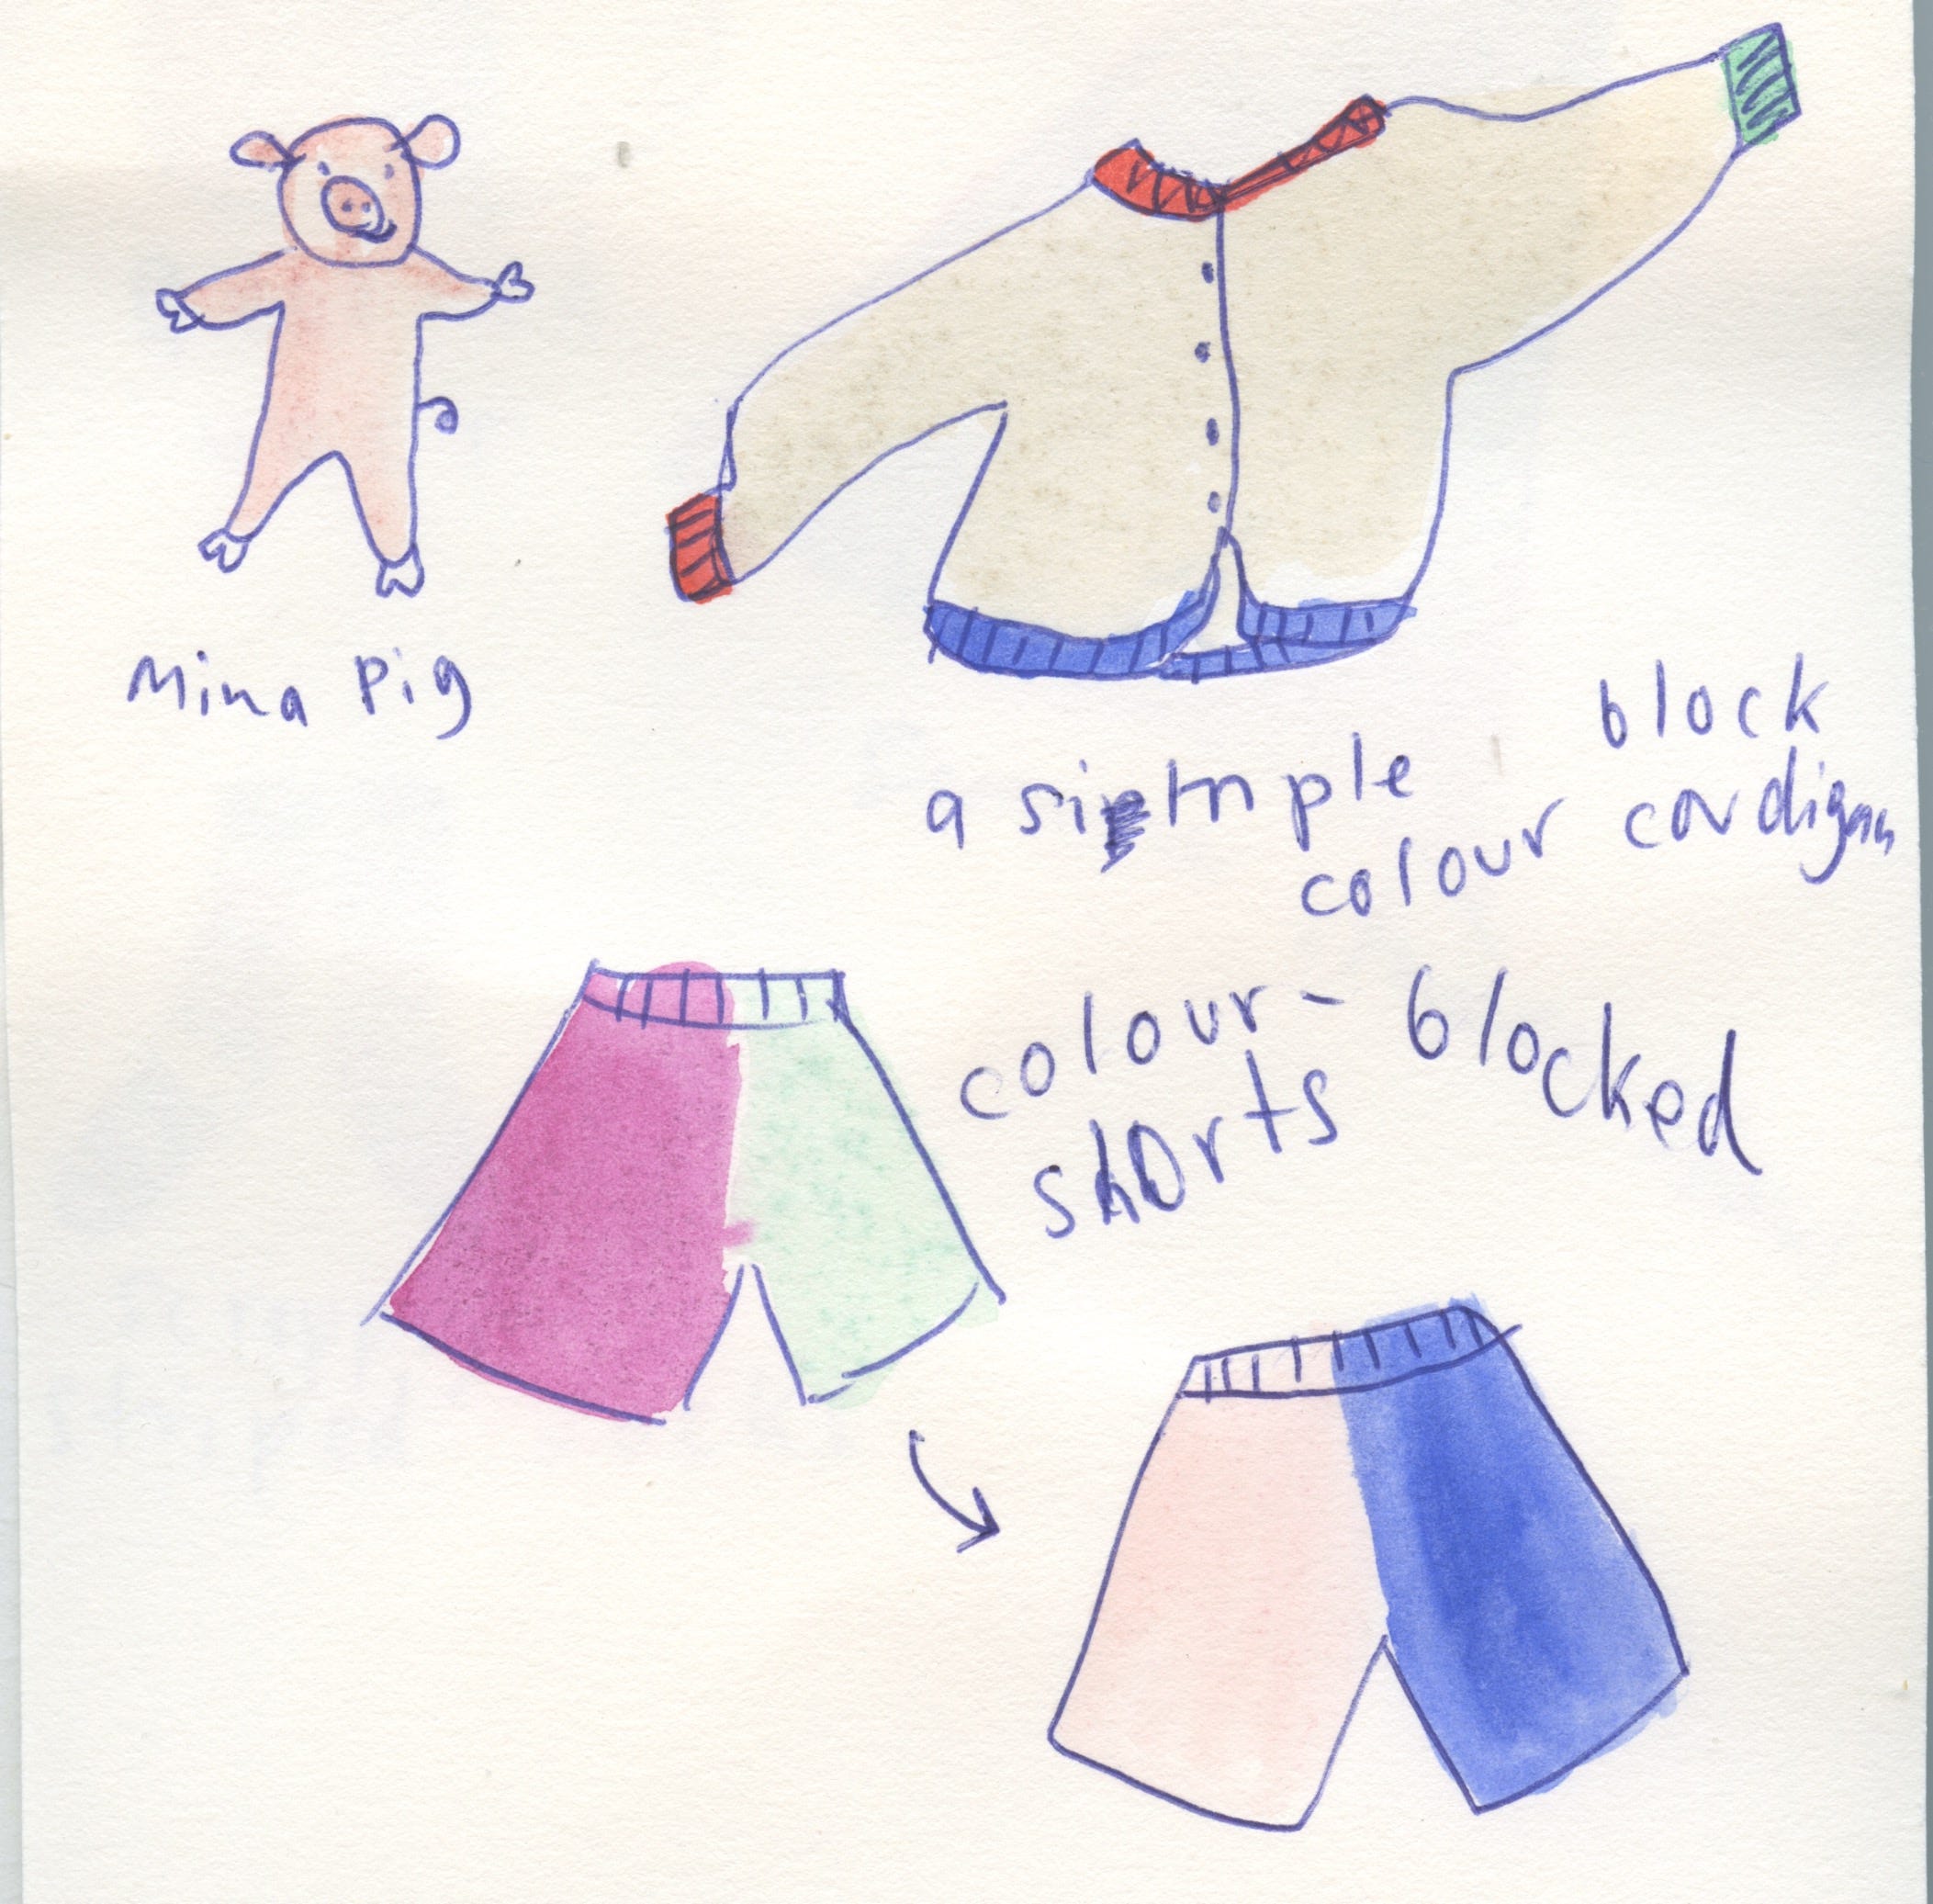 Mina Pig
a simple block
colour cardigan
colour-blocked
shorts